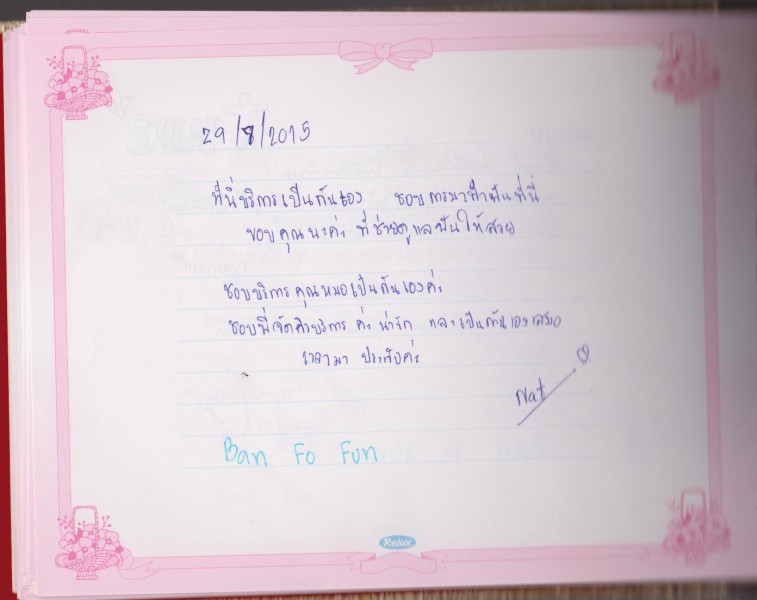 29/8/2015
ที่นี่บริการเป็นกันเอง ชอบการมาทำฟันที่นี่
ขอบคุณนะค่ะ ที่ช่วยดูแลฟันให้สวย
ชอบบริการคุณหมอเป็นกันเองค่ะ
ชอบพี่จัดคิวบริการ ค่ะ น่ารัก และเป็นกันเองเสมอ
เวลามา ประทับค่ะ
Nat
Ban Fo Fun
Relux